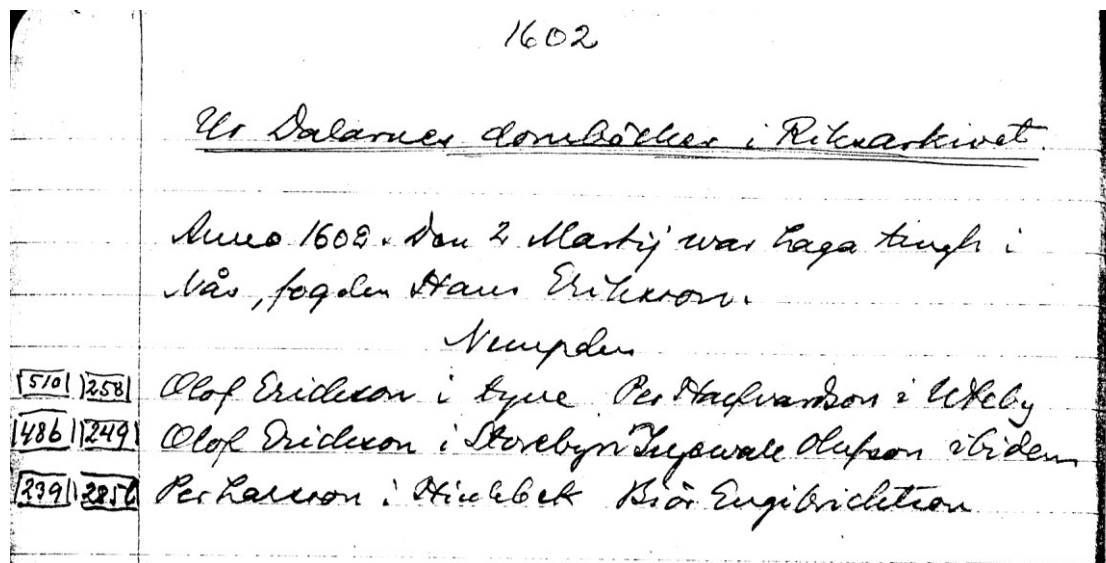 1602
Ur Dalarnes domböcker i Riksarkivet.
Anno 1602. Den 2 Martij war laga tingh i
Nås, fogden Hans Eriksson.
Nempden
510 258 Olof Erickson i tyne Per Haghvardson i Utheby
486 249 Olof Erickson i Storebyn Ingewale Olufson ibidem
239 285b Per Larsson i Biör Engibrichtson